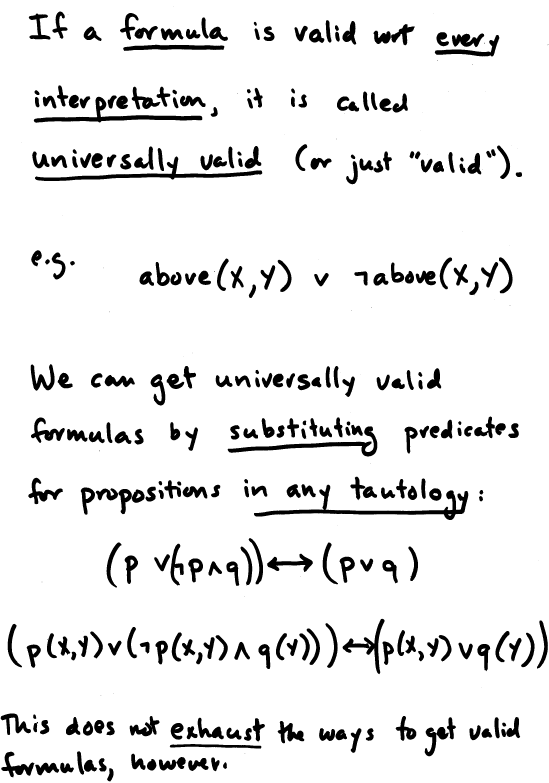 If a formula is valid wrt every
interpretation, it is called
universally valid (or just "valid").
e.g. above(X,Y) ∨ ¬above(X,Y)
We can get universally valid
formulas by substituting predicates
for propositions in any tautology:
(p ∨(¬p∧q))↔(p∨q)
(p(X,Y)∨(¬p(X,Y)∧q(Y)))↔(p(X,Y)∨q(Y))
This does not exhaust the ways to get valid
formulas, however.